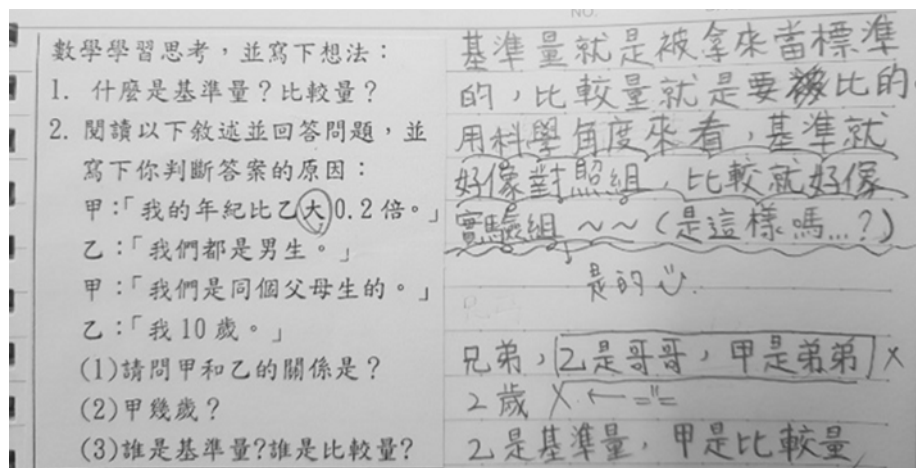 NO.
數學學習思考，並寫下想法：
1. 什麼是基準量？比較量？
2. 閱讀以下敘述並回答問題，並
寫下你判斷答案的原因：
甲：「我的年紀比乙大0.2倍。」
乙：「我們都是男生。」
甲：「我們是同個父母生的。」
乙：「我10歲。」
(1)請問甲和乙的關係是？
(2)甲幾歲？
(3)誰是基準量?誰是比較量?
基準量就是被拿來當標準
的，比較量就是要比的
用科學角度來看，基準就
好像對照組，比較就好像
實驗組～～（是這樣嗎…?）
是的
兄弟，乙是哥哥，甲是弟弟 X
2歲 X ←
乙是基準量，甲是比較量